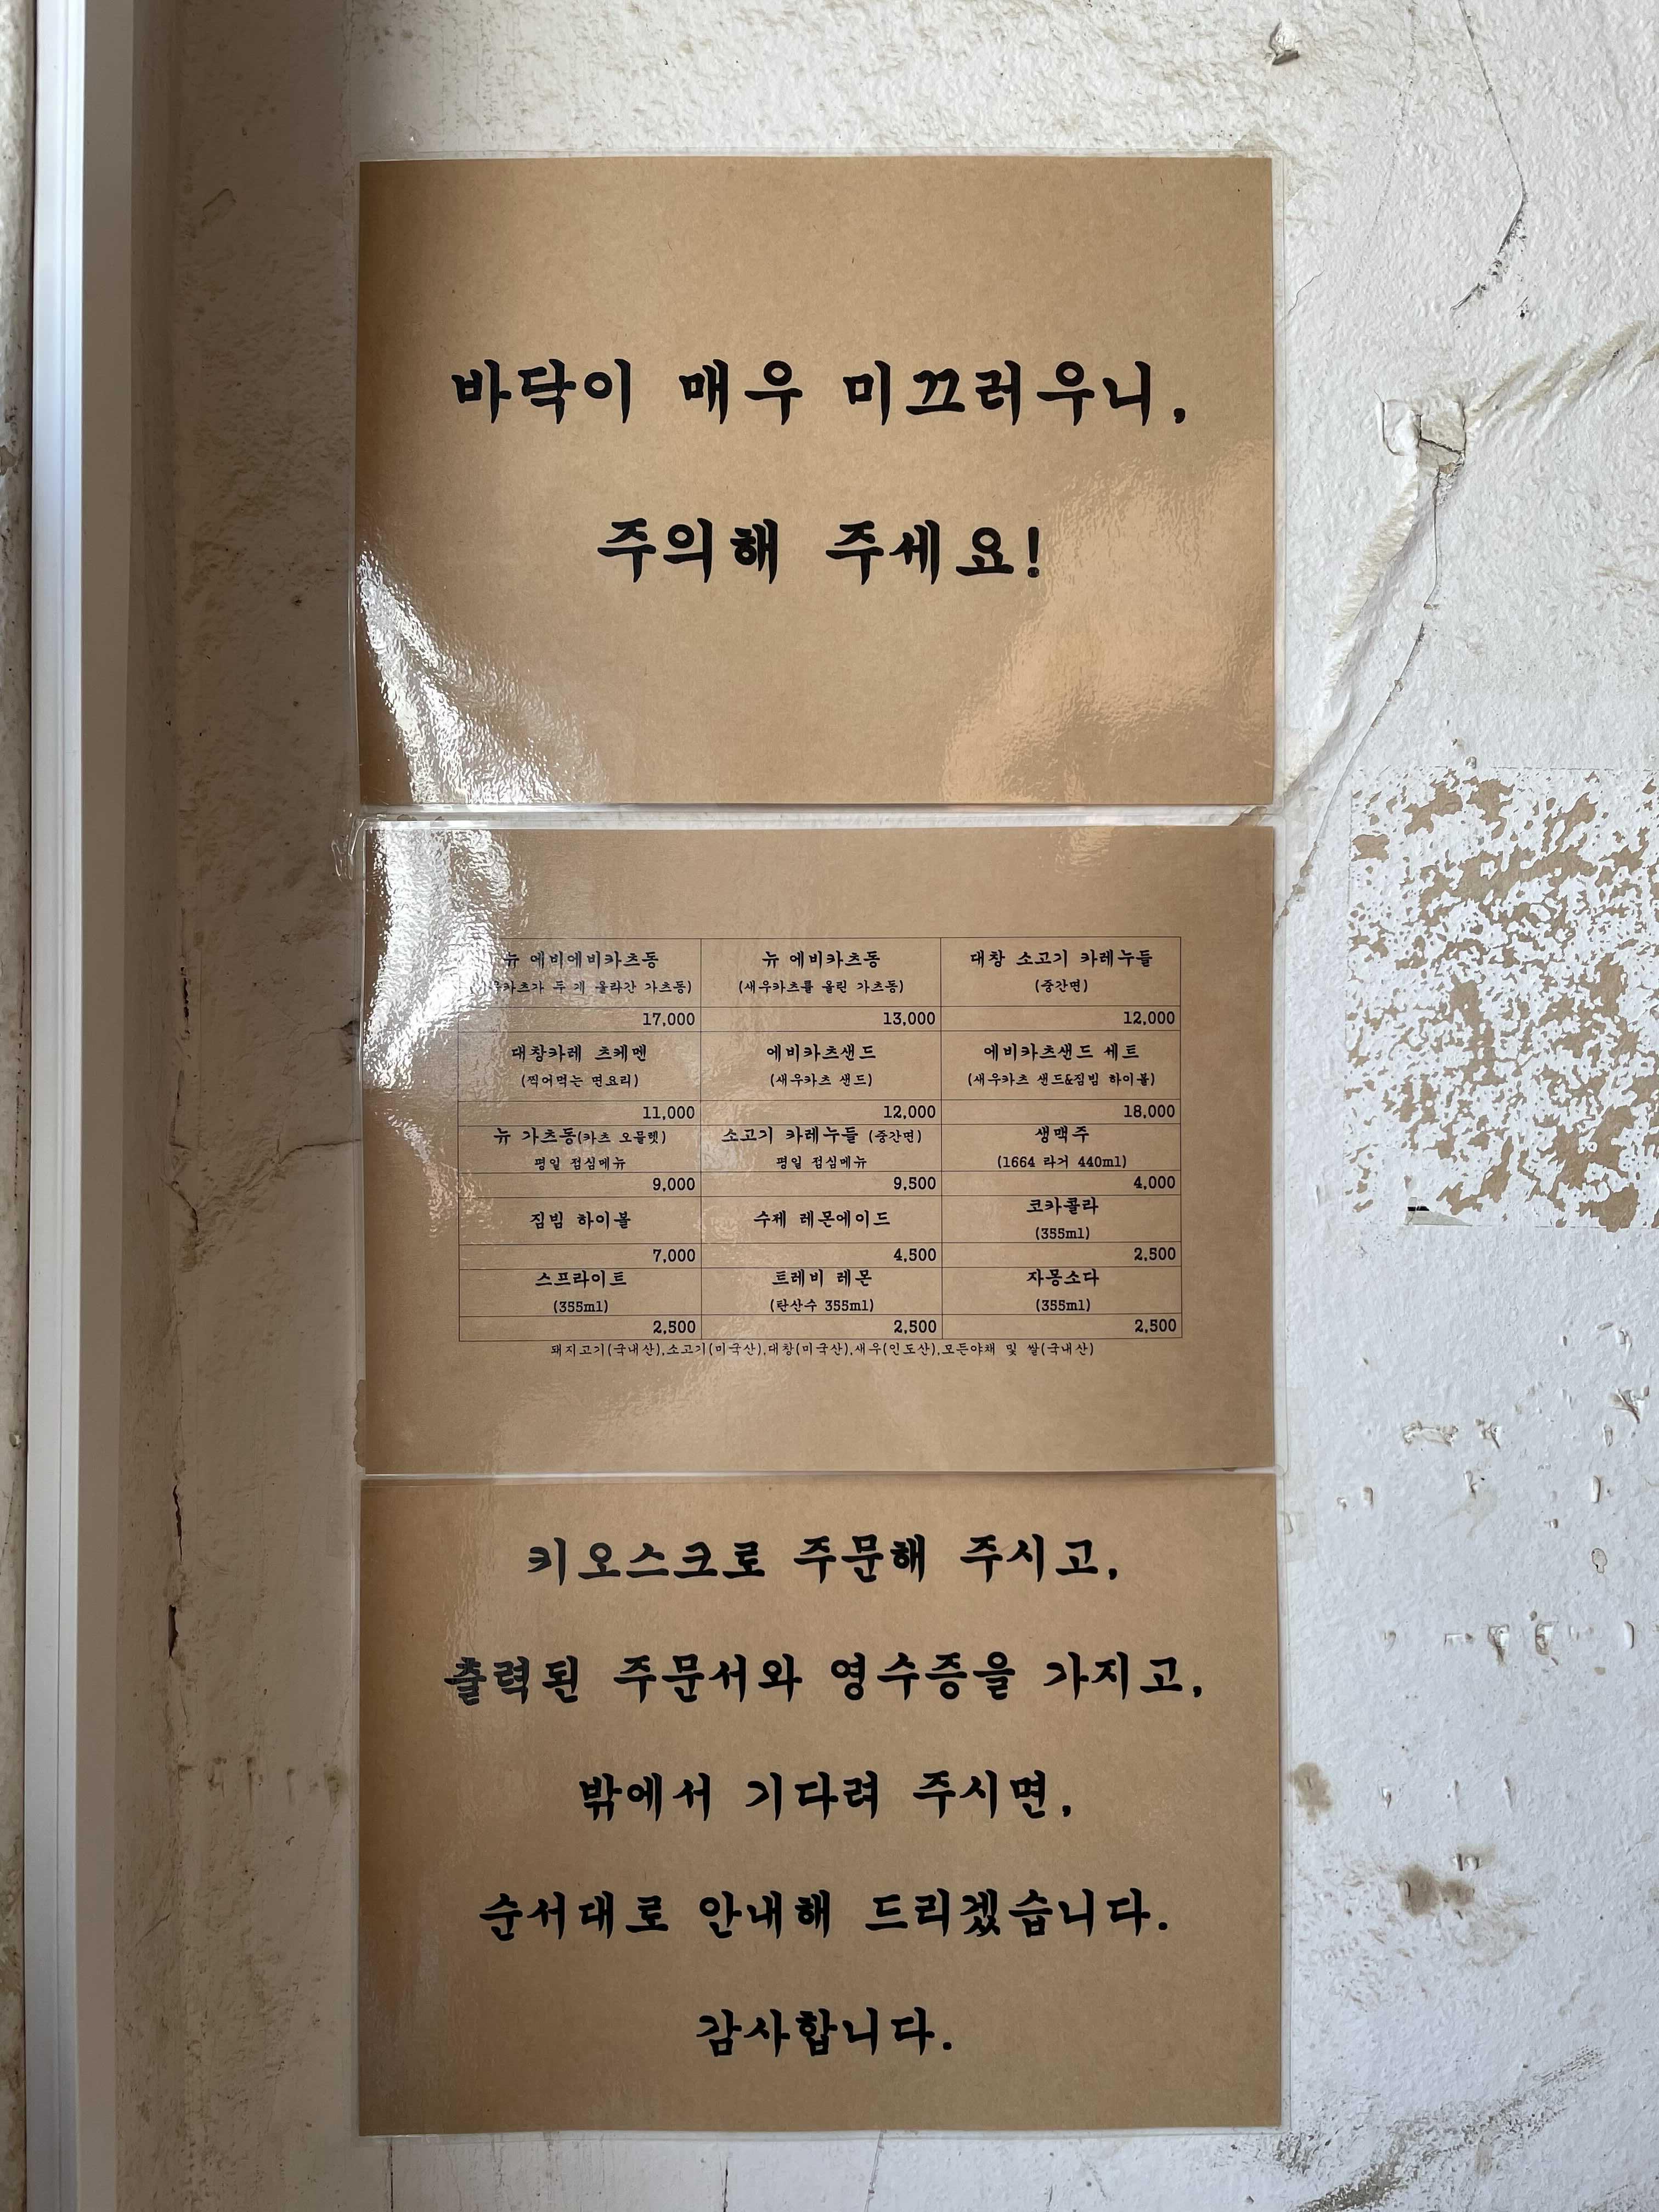 바닥이 매우 미끄러우니,
주의해 주세요!
뉴 에비에비카츠동 뉴 에비카츠동 대창 소고기 카레누들
두 게 올라간 가츠동) (새우카츠를 올린 가츠동) (중간면)
17,000 13,000 12,000
대창카레 츠케멘 에비카츠샌드 에비카츠샌드 세트
(찍어먹는 면요리) (새우카츠 샌드) (새우카츠 샌드&짐빔 하이볼)
11,000 12,000 18,000
뉴 가츠동(카츠 오믈렛) 소고기 카레누들 (중간면) 생맥주
평일 점심메뉴 평일 점심메뉴 (1664 라거 440ml)
9,000 9,500 4,000
짐빔 하이볼 수제 레몬에이드 코카콜라
(355ml)
7,000 4,500 2,500
스프라이트 트레비 레몬 자몽소다
(355ml) (탄산수 355ml) (355ml)
2,500 2,500 2,500
돼지고기(국내산),소고기(미국산),대창(미국산),새우(인도산),모든야채 및 쌀(국내산)
키오스크로 주문해 주시고,
출력된 주문서와 영수증을 가지고,
밖에서 기다려 주시면,
순서대로 안내해 드리겠습니다.
감사합니다.